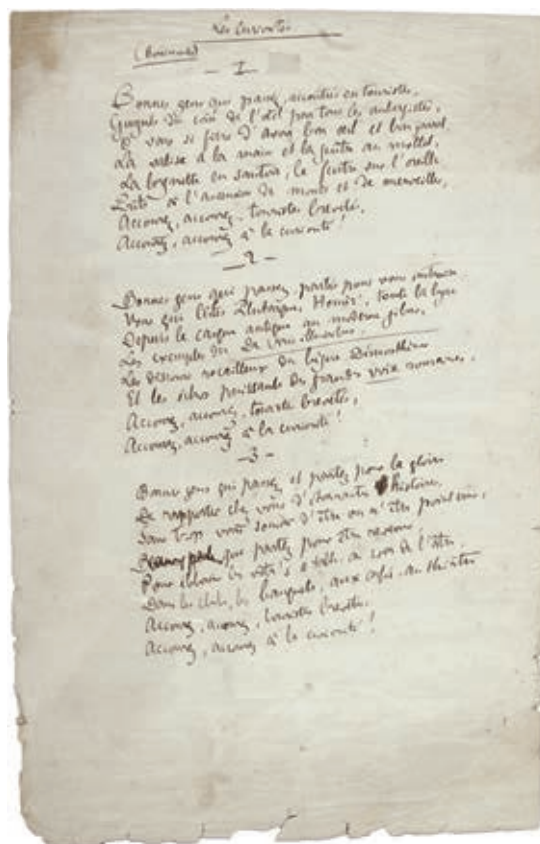 Les Curiosités
— 1 —
Bonnes gens qui passez, accoutrés en touristes,
du coin de l'œil par tous les aubergistes,
Et vous si fiers d'avoir bon œil et bon
La valise à la main et la guêtre au mollet,
La lorgnette en sautoir, le feutre sur l'oreille
à l'ascension de monts et de merveilles,
Accourez, accourez, touristes brevetés,
Accourez, accourez à la curiosité!
— 2 —
Bonnes gens qui passez partis pour vous
Vous qui lûtes Plutarque, Homère, toute la lyre
Depuis le casque antique au moderne gibus,
Les exemples du De Viris illustribus,
Les discours rocailleux du bègue Démosthènes
Et les échos puissants des grandes voix romaines,
Accourez, accourez, touristes brevetés,
Accourez, accourez à la curiosité!
— 3 —
Bonnes gens qui passez et partez pour la gloire
De rapporter chez vous d'étonnantes histoires,
Sans trop vous soucier d'être ou n'être point
que partez pour être revenus
Pour
Dans les clubs, les banquets, aux cafés, au théâtre
Accourez, accourez, touristes brevetés,
Accourez, accourez à la curiosité!